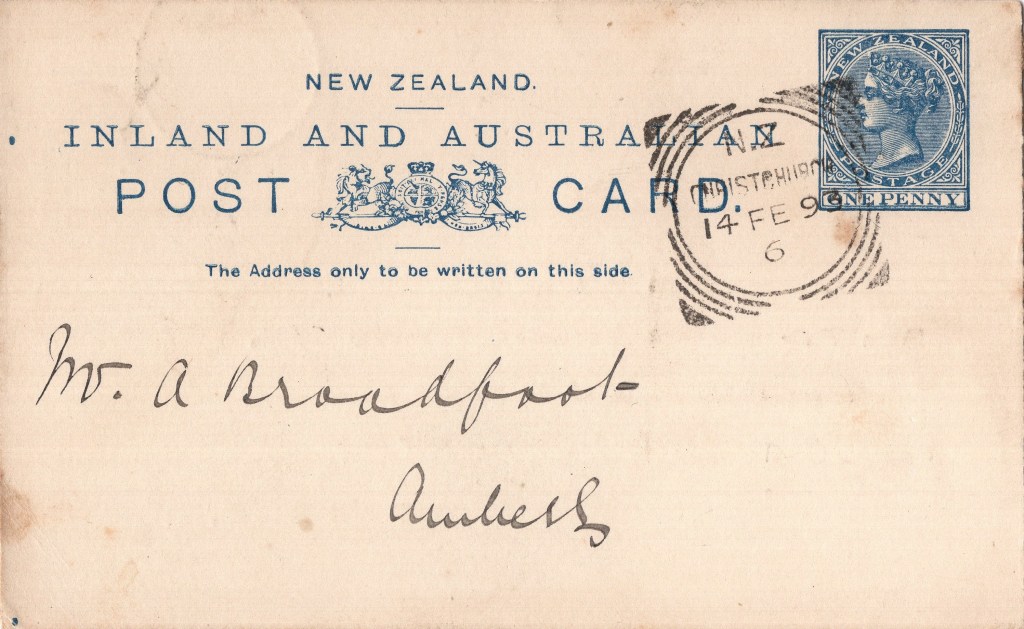 NEW ZEALAND.
INLAND AND AUSTRALIAN
POST CARD.
The Address only to be written on this side.
NEW ZEALAND
POSTAGE
ONE PENNY
N.Z
CHRISTCHURCH
14 FE 93
6
Mr. A Broadfoot